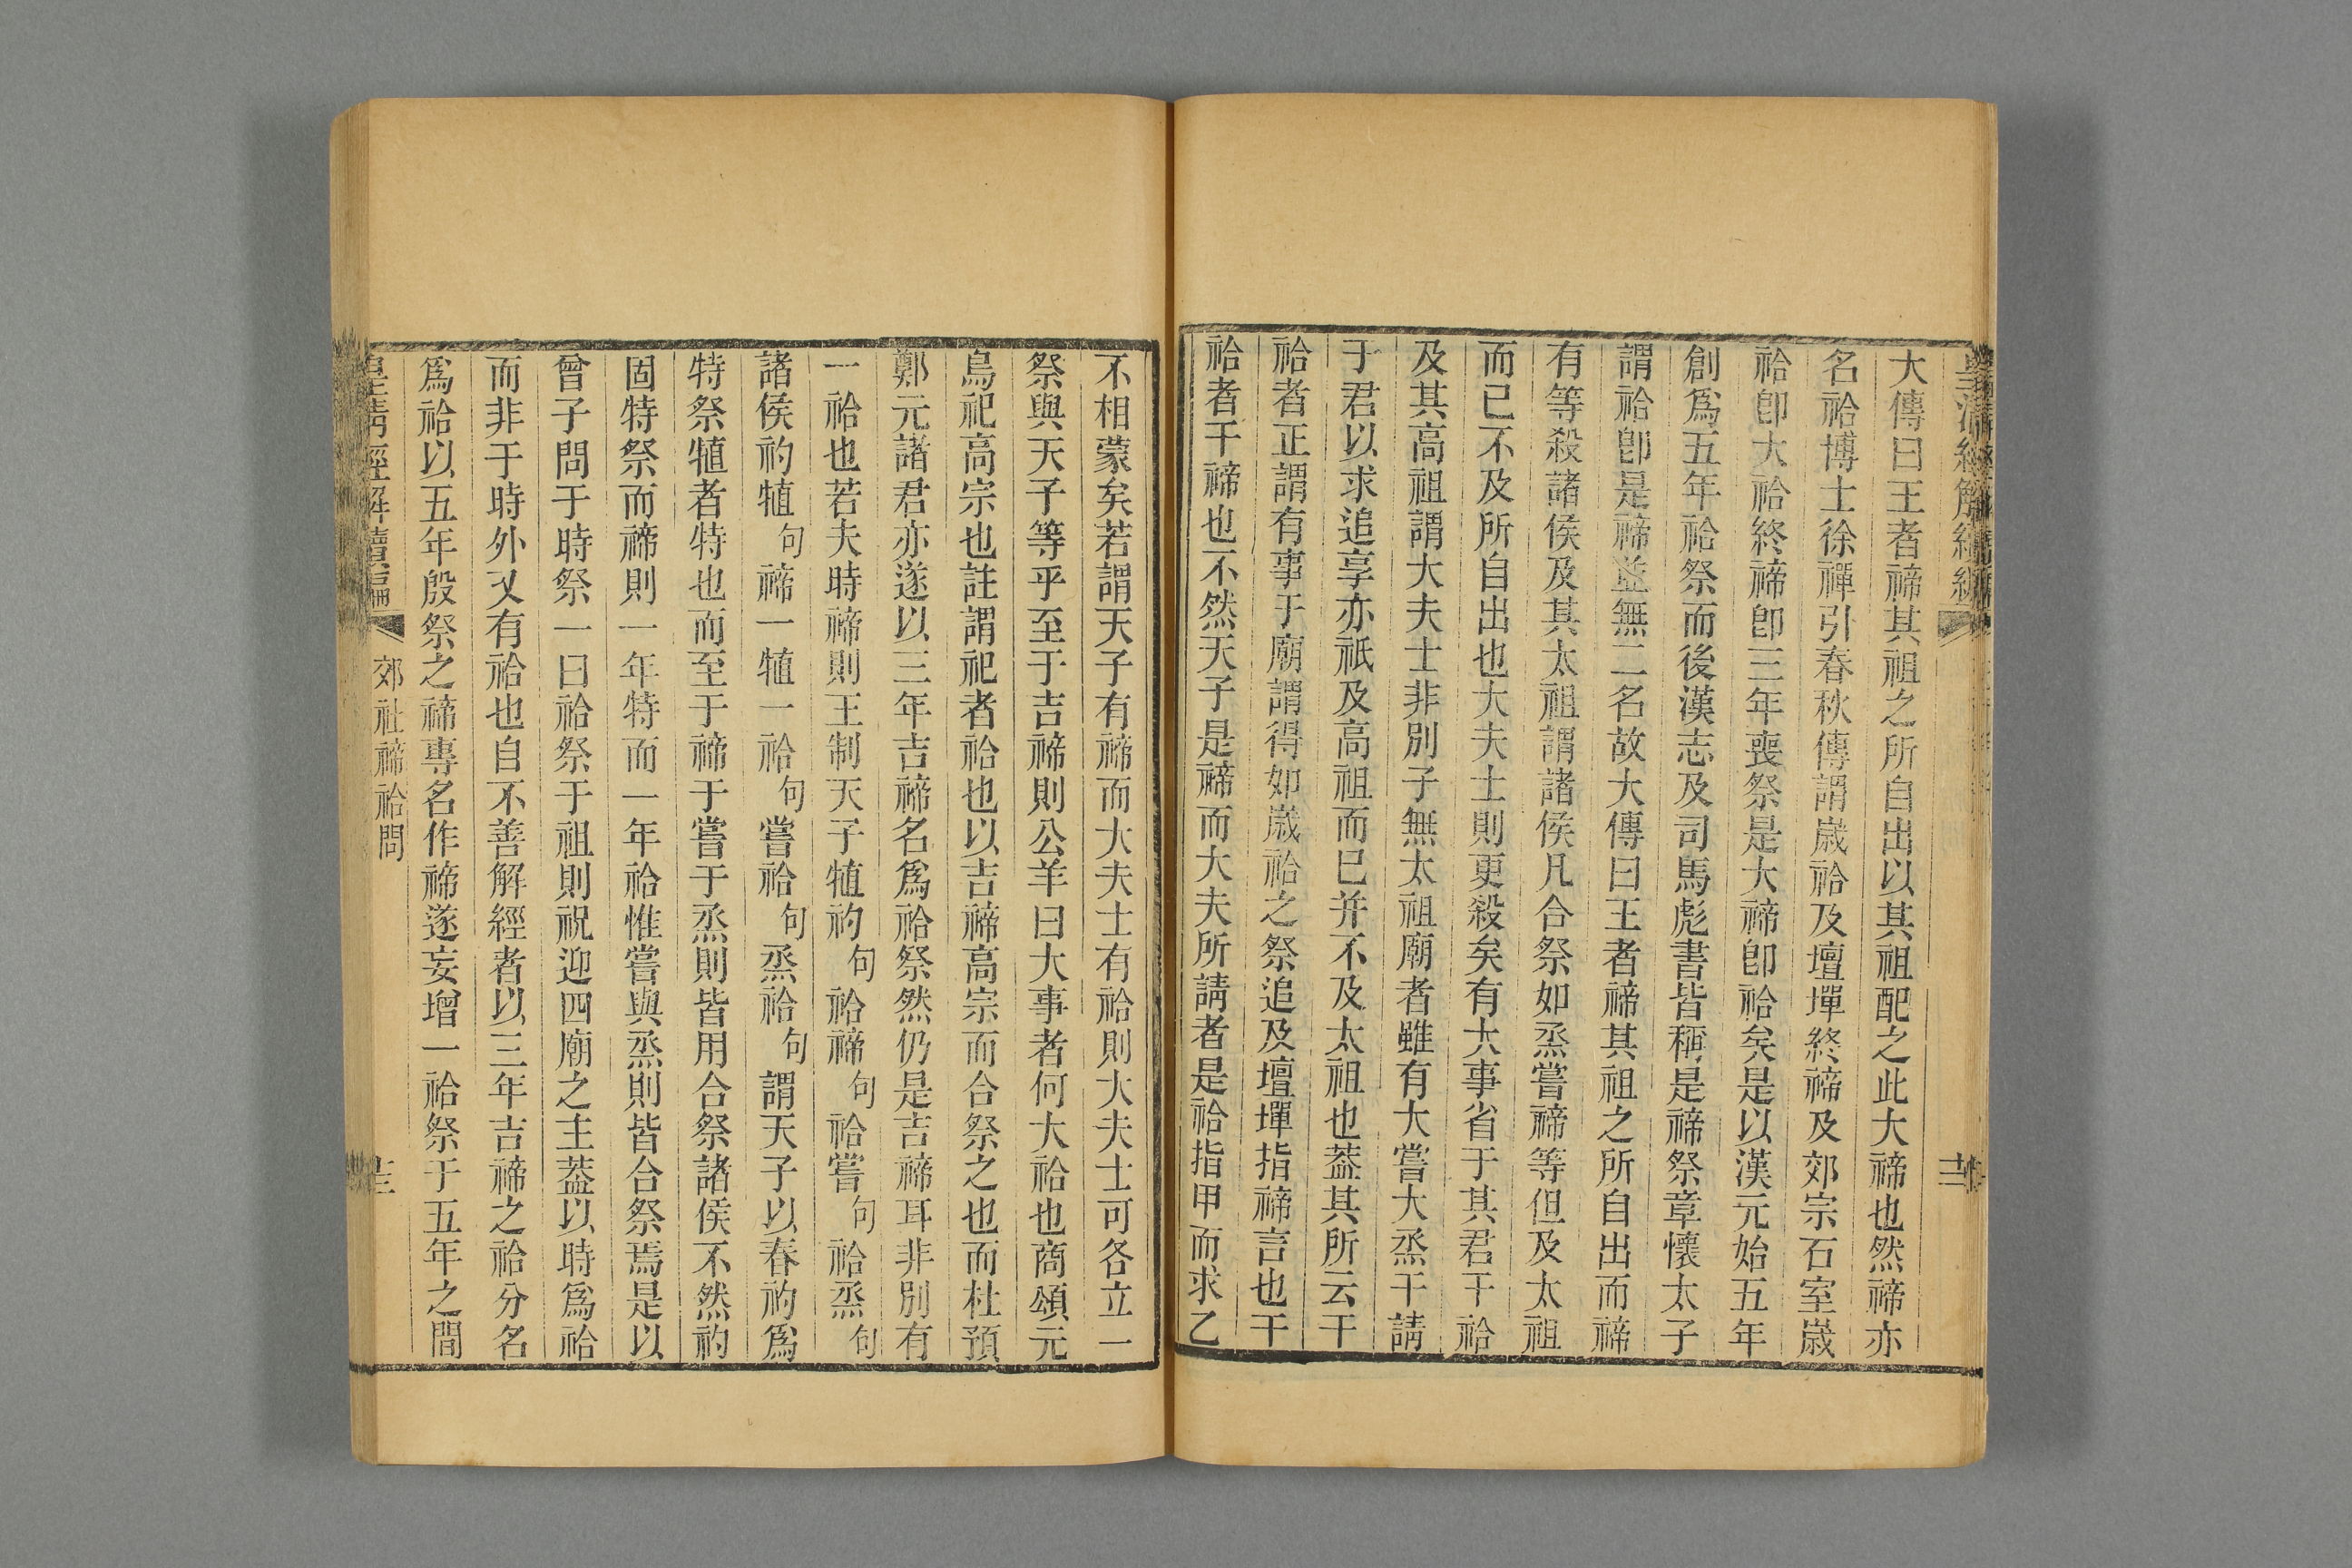 皇清經解續編
大傳曰王者禘其祖之所自出以其祖配之此大禘也然禘亦
名祫博士徐禪引春秋傳謂歲祫及壇墠終禘及郊宗石室歲
祫卽大祫終禘卽三年喪祭是大禘卽祫矣是以漢元始五年
創爲五年祫祭而後漢志及司馬彪書皆稱是禘祭章懷太子
謂祫卽是禘並無二名故大傳曰王者禘其祖之所自出而禘
有等殺諸侯及其太祖謂諸侯凡合祭如烝嘗禘等但及太祖
而已不及所自出也大夫士則更殺矣有大事省于其君干祫
及其高祖謂大夫士非別子無太祖廟者雖有大嘗大烝干請
于君以求追享亦祇及高祖而已并不及太祖也葢其所云干
祫者正謂有事于廟謂得如歲祫之祭追及壇墠指禘言也干
祫者干禘也不然天子是禘而大夫所請者是祫指甲而求乙
不相蒙矣若謂天子有禘而大夫士有祫則大夫士可各立一
祭與天子等乎至于吉禘則公羊曰大事者何大祫也商頌元
鳥祀高宗也註謂祀者祫也以吉禘高宗而合祭之也而杜預
鄭元諸君亦遂以三年吉禘名爲祫祭然仍是吉禘耳非別有
一祫也若夫時禘則王制天子犆礿句祫禘句祫嘗句祫烝句
諸侯礿犆句禘一犆一祫句嘗祫句烝祫句謂天子以春礿爲
特祭犆者特也而至于禘于嘗于烝則皆用合祭諸侯不然礿
固特祭而禘則一年特而一年祫惟嘗與烝則皆合祭焉是以
曾子問于時祭一曰祫祭于祖則祝迎四廟之主葢以時爲祫
而非于時外又有祫也自不善解經者以三年吉禘之祫分名
爲祫以五年殷祭之禘專名作禘遂妄增一祫祭于五年之間
皇清經解續編 郊社禘祫問 十三